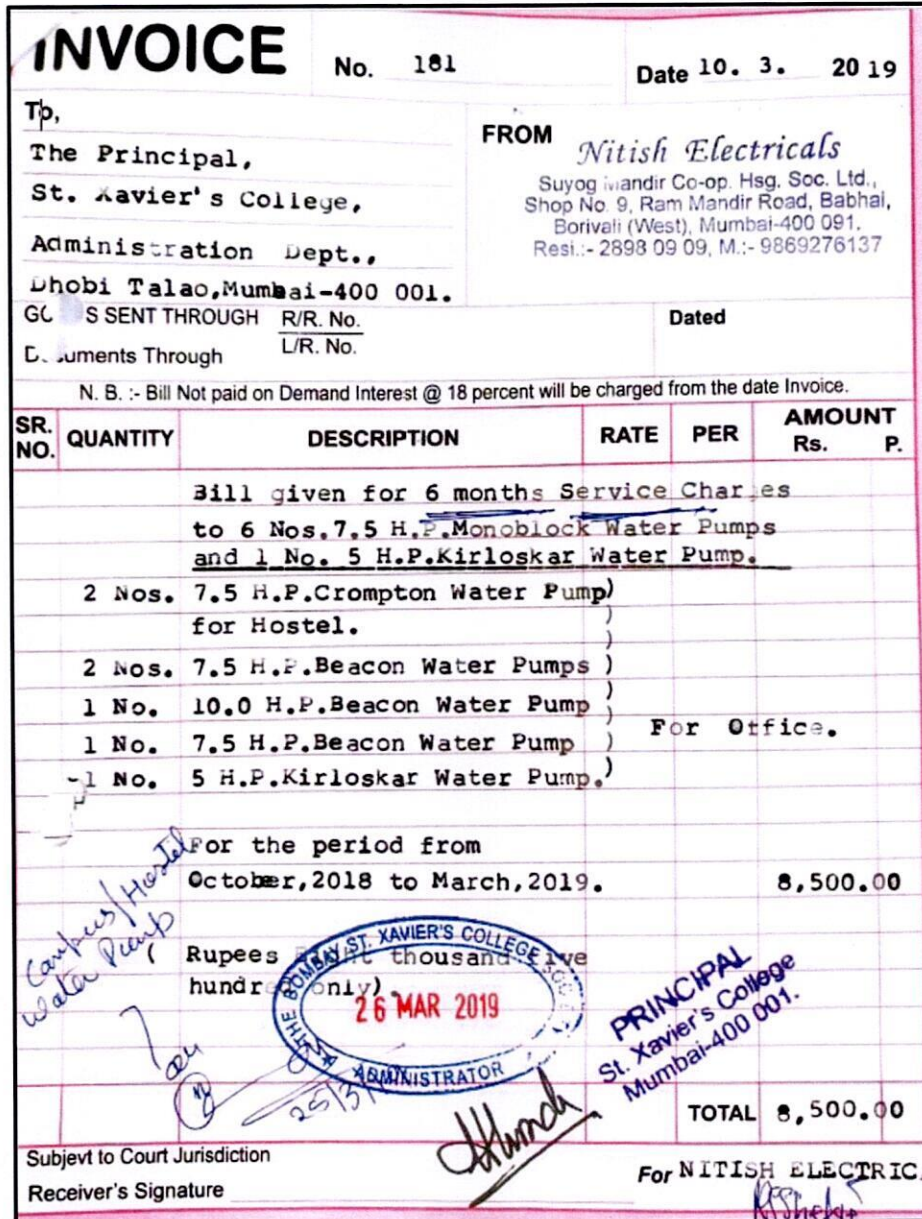 INVOICE No. 181 Date 10. 3. 2019
To,
The Principal,
St. Xavier's College,
Administration Dept.,
Dhobi Talao,Mumbai-400 001.
FROM
Nitish Electricals
Suyog Mandir Co-op. Hsg. Soc. Ltd.,
Shop No. 9, Ram Mandir Road, Babhai,
Borivali (West), Mumbai-400 091.
Resi.:- 2898 09 09, M.:- 9869276137
GOODS SENT THROUGH R/R. No. Dated
L/R. No.
Documents Through
N. B. :- Bill Not paid on Demand Interest @ 18 percent will be charged from the date Invoice.
SR. NO. QUANTITY DESCRIPTION RATE PER AMOUNT Rs. P.
Bill given for 6 months Service Charges
to 6 Nos.7.5 H.P.Monoblock Water Pumps
and 1 No. 5 H.P.Kirloskar Water Pump.
2 Nos. 7.5 H.P.Crompton Water Pump)
for Hostel. )
)
2 Nos. 7.5 H.P.Beacon Water Pumps )
)
1 No. 10.0 H.P.Beacon Water Pump )
For Office.
1 No. 7.5 H.P.Beacon Water Pump )
1 No. 5 H.P.Kirloskar Water Pump.)
For the period from
October,2018 to March,2019. 8,500.00
Campus/Hostel
Water Pump
( Rupees Eight thousand five
hundred only).
THE BOMBAY ST. XAVIER'S COLLEGE SOCIETY
26 MAR 2019
ADMINISTRATOR
25/3/
PRINCIPAL
St. Xavier's College
Mumbai-400 001.
TOTAL 8,500.00
Subjevt to Court Jurisdiction
For NITISH ELECTRIC
Receiver's Signature